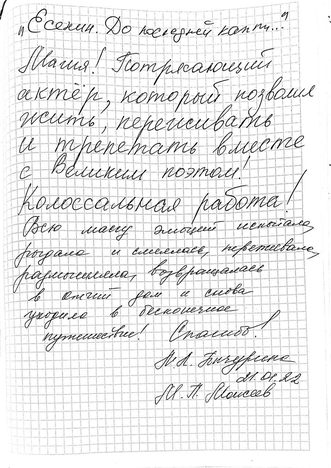 „Есенин. До последней капли..."
Магия! Потрясающий
актёр, который позволил
жить, переживать
и трепетать вместе
с Великим поэтом!
Колоссальная работа!
Всю массу эмоций испытала,
рыдала и смеялась, переживала,
размышляла, возвращалась
в отчий дом и снова
уходила в бесконечное
путешествие! Спасибо!
21.01.22
М. П. Моисеев